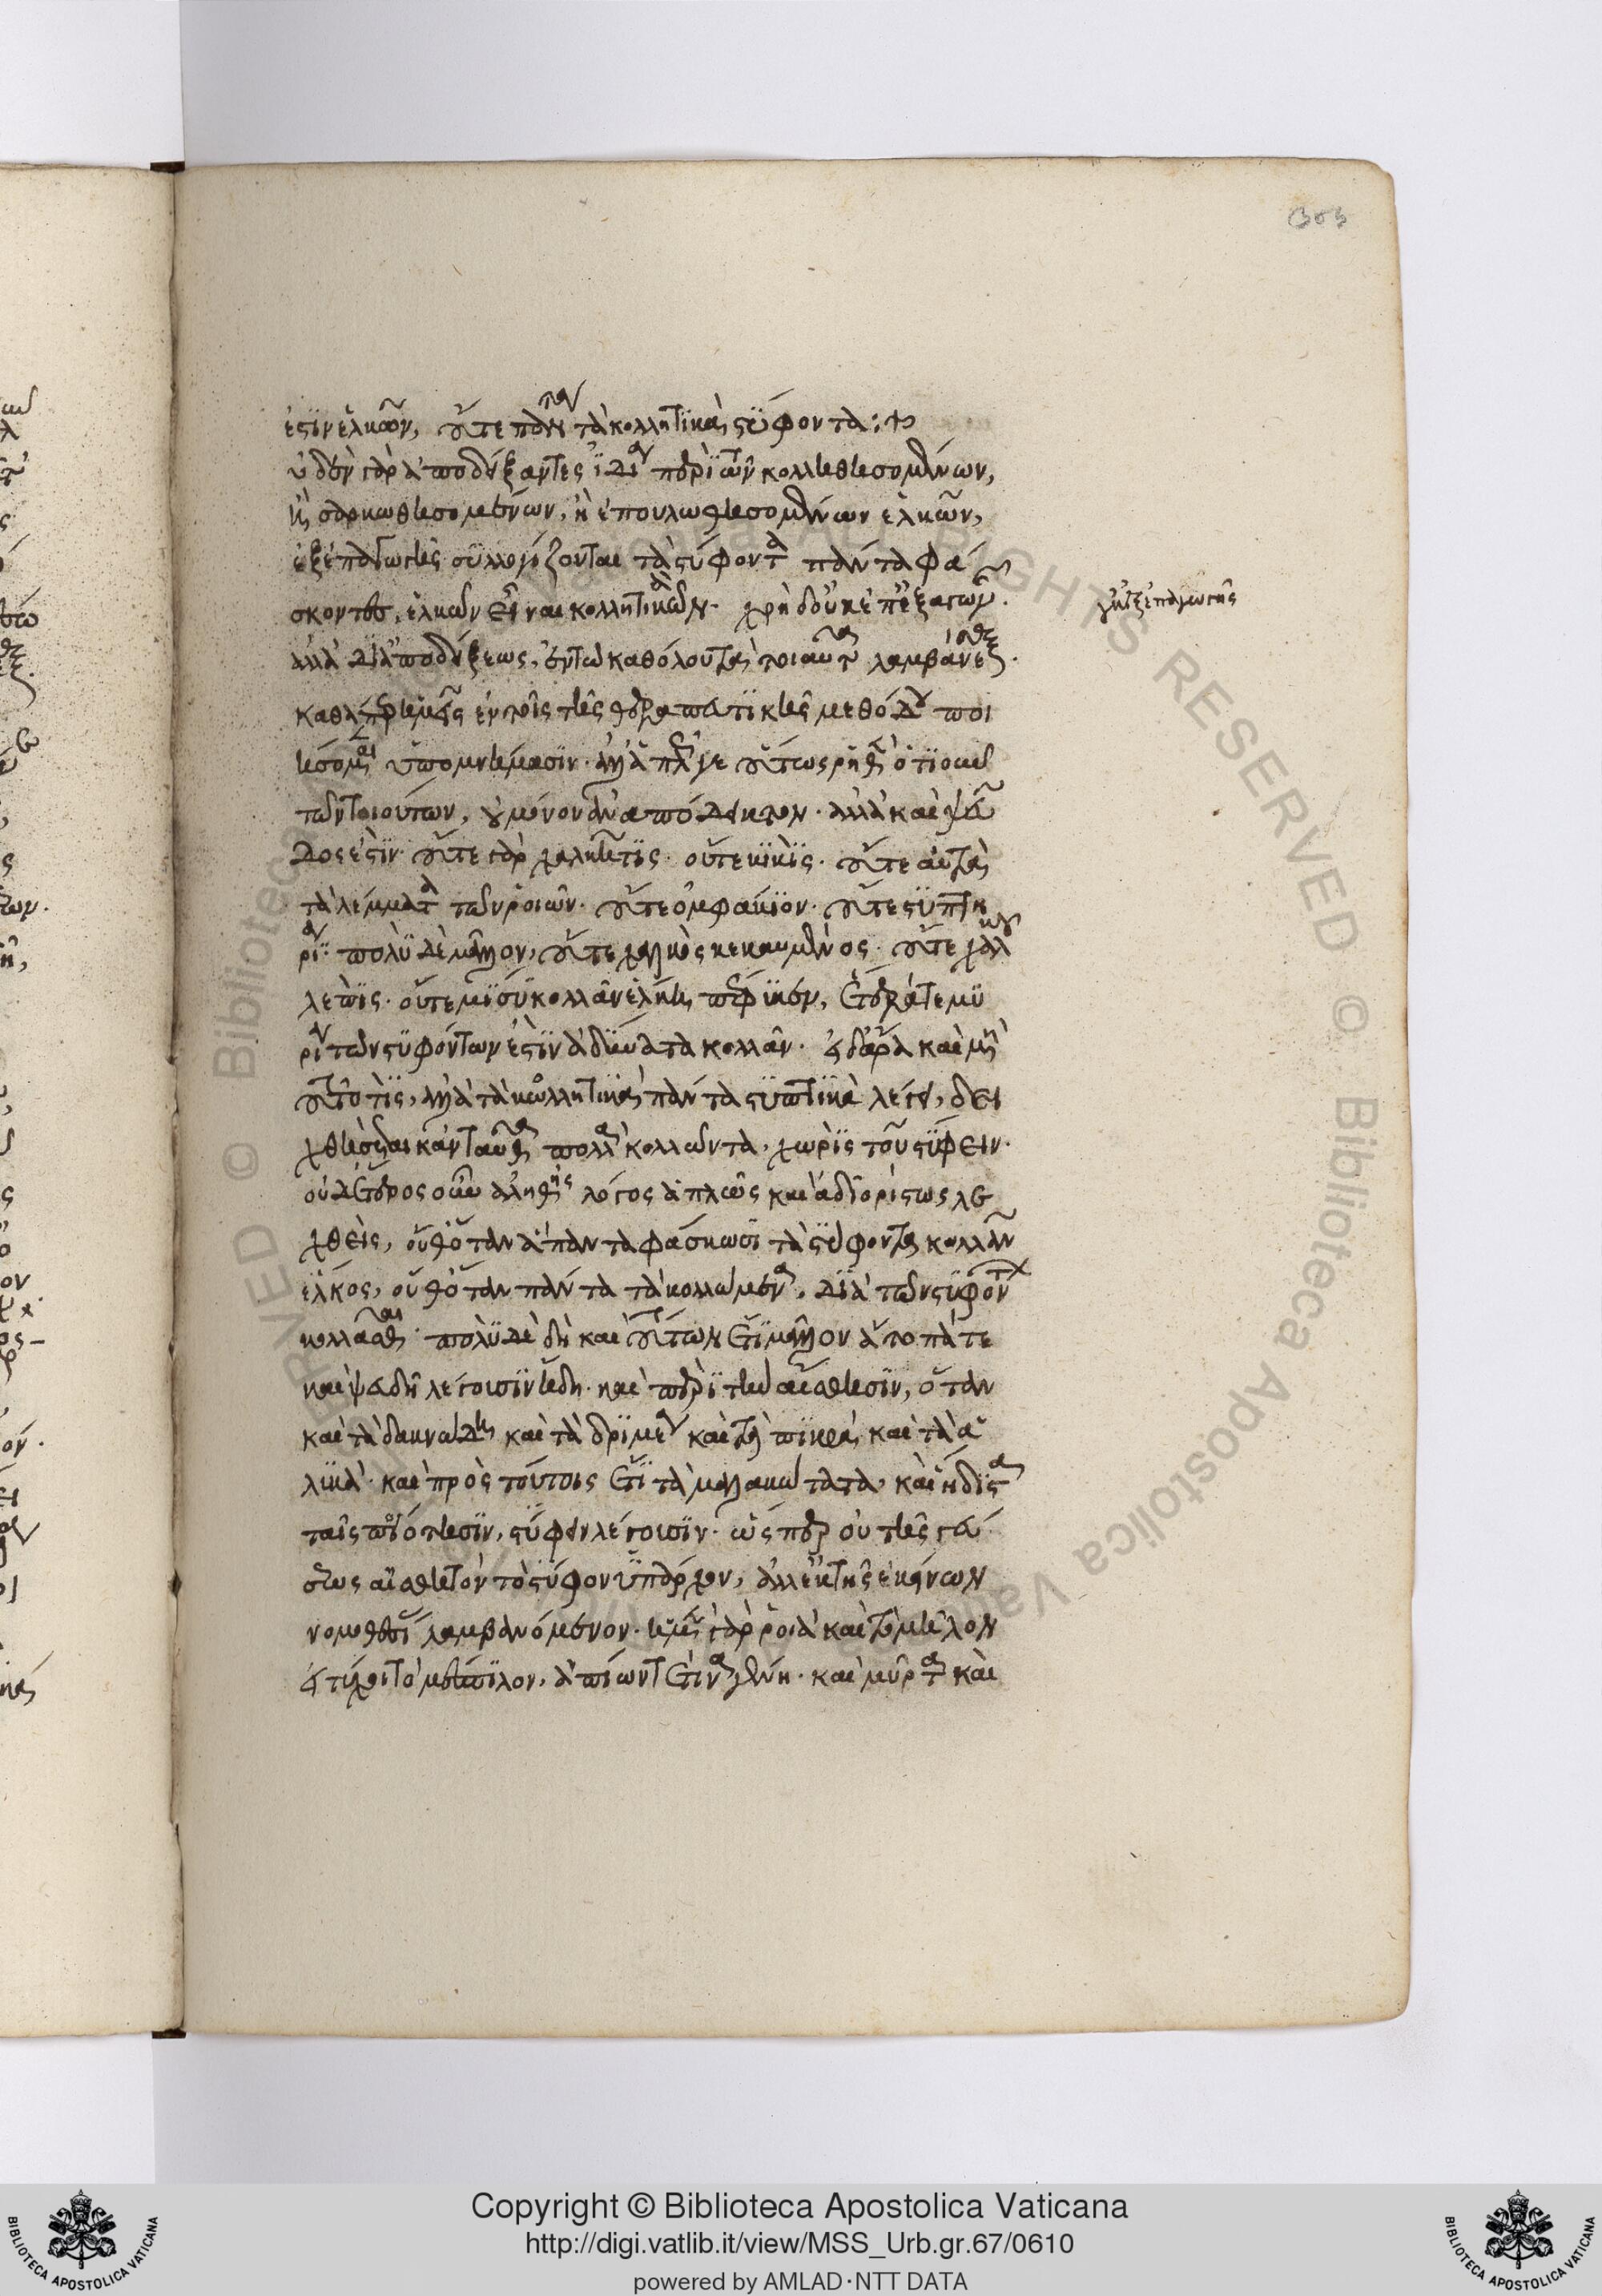 303
ἐστιν ἑλκῶν, οὔτε πάντα τὰ κολλητικὰ στύφοντα:
οὐδὲν γὰρ ἀποδείξαντες ἰδίᾳ περὶ τῶν κολληθησομένων,
ἢ σαρκωθησομένων, ἢ ἐπουλωθησομένων ἑλκῶν,
ἐξ ἐπαγωγῆς συλλογίζονται τὰ στύφοντα πάντα φά
σκοντες, ἑλκῶν εἶναι κολλητικά. χρὴ δ' οὐκ ἐπ' ἐξαγωγῆς.
ἀλλὰ δι' ἀποδείξεως, ἐν τῷ καθόλου τὰ τοιαῦτα λαμβάνεσθαι.
καθάπερ ἡμεῖς ἐν τοῖς τῆς θεραπευτικῆς μεθόδου ποι
ησόμεθα ὑπομνήμασιν. ἀλλὰ πρός γε οὕτως ῥηθὲν ὅτιουν
τῶν τοιούτων, οὐ μόνον ἀναπόδεικτον. ἀλλὰ καὶ ψεῦ
δος ἐστίν. οὔτε γὰρ χαλκῖτις. οὔτε κικίς. οὔτε αὐτὰ
τὰ λέμματα τῶν ῥοιῶν. οὔτε ὀμφάκιον. οὔτε στυπτη
ρία. πολὺ δὲ μᾶλλον, οὔτε χαλκὸς κεκαυμένος. οὔτε χαλκοῦ
λεπίς. οὔτε μίσυ κολλᾶν ἕλκη πέφυκεν, ἕτερά τε μυ
ρία τῶν στυφόντων ἐστὶν ἀδύνατα κολλᾶν. εἰ δ' ἄρα καὶ μὴ
οὕτω τις, ἀλλὰ τὰ κολλητικὰ πάντα στυπτικὰ λέγει, δει
χθήσεται κἀνταῦθα πολλὰ κολλῶντα, χωρὶς τοῦ στύφειν.
οὐδέτερος οὖν ἀληθὴς λόγος ἁπλῶς καὶ ἀδιορίστως λε
χθείς, οὔθ' ὅταν ἅπαντα φάσκωσι τὰ στύφοντα κολλᾶν
ἕλκος, οὔθ' ὅταν πάντα τὰ κολλώμενα, διὰ τῶν στυφόντων
κολλᾶσθαι. πολὺ δὲ δὴ καὶ τούτων ἔτι μᾶλλον ἄτοπά τε
καὶ ψευδῆ λέγουσιν ἤδη. καὶ περὶ τὴν αἴσθησιν, ὅταν
καὶ τὰ δακνώδη καὶ τὰ δριμέα καὶ τὰ πικρὰ καὶ τὰ ἁ
λυκὰ. καὶ πρὸς τούτοις ἔτι τὰ μαλακώτατα, καὶ ἥδιστα
ταῖς ποιότησιν, στύφειν λέγουσιν. ὥσπερ οὐ τῆς γεύ
σεως αἰσθητὸν τὸ στύφον ὑπάρχον, ἀλλ' ἐκ τῆς ἐκείνων
νομοθεσίας λαμβανόμενον. ἡμεῖς γὰρ ῥοιὰ καὶ τὸ μῆλον
εἰ τύχοι τὸ μέσπιλον, ἀπίων τέ τινα γένη. καὶ μύρτα καὶ